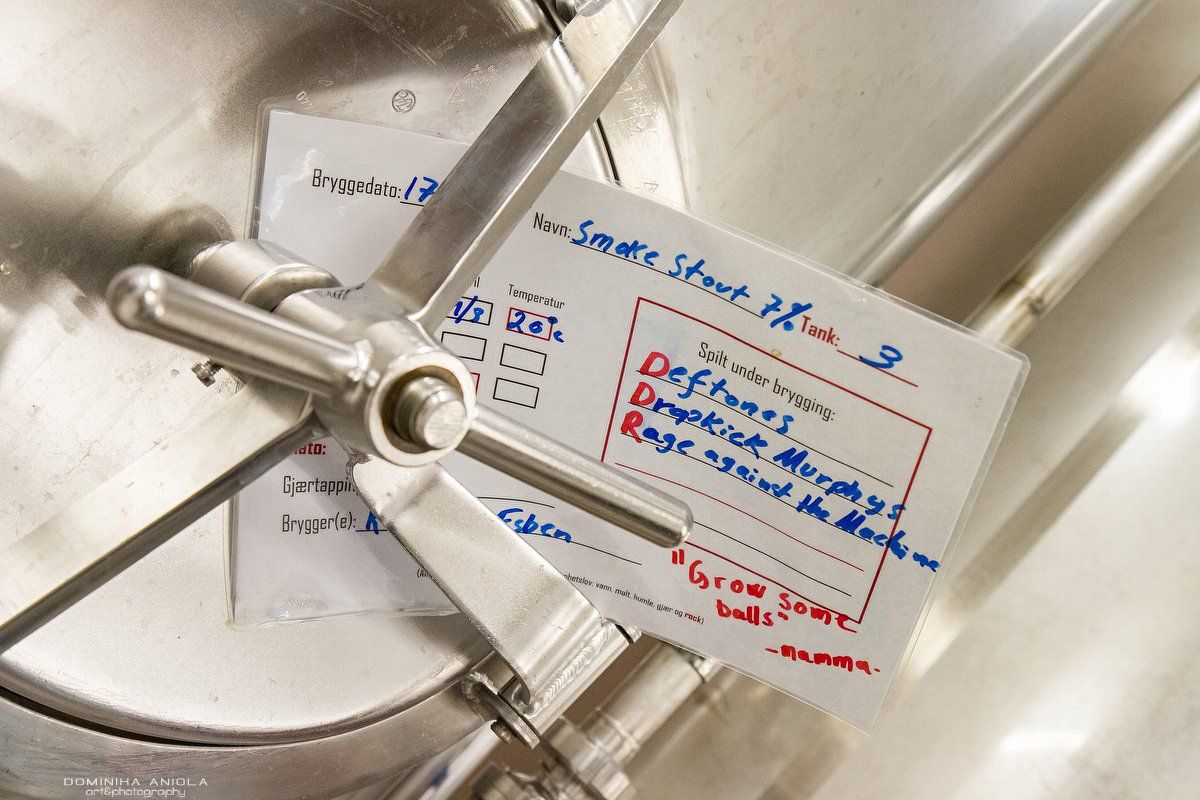 Bryggedato: 17
Navn: Smoke Stout 7%
Tank: 3
Temperatur
1/3 20°c
Spilt under brygging:
Deftones
Dropkick Murphys
Rage against the Machine
Gjærtappin
Brygger(e): K Esben
vann, malt, humle, gjær og rock)
"Grow some
balls"
-mamma-
DOMINIHA ANIOLA
art&photography